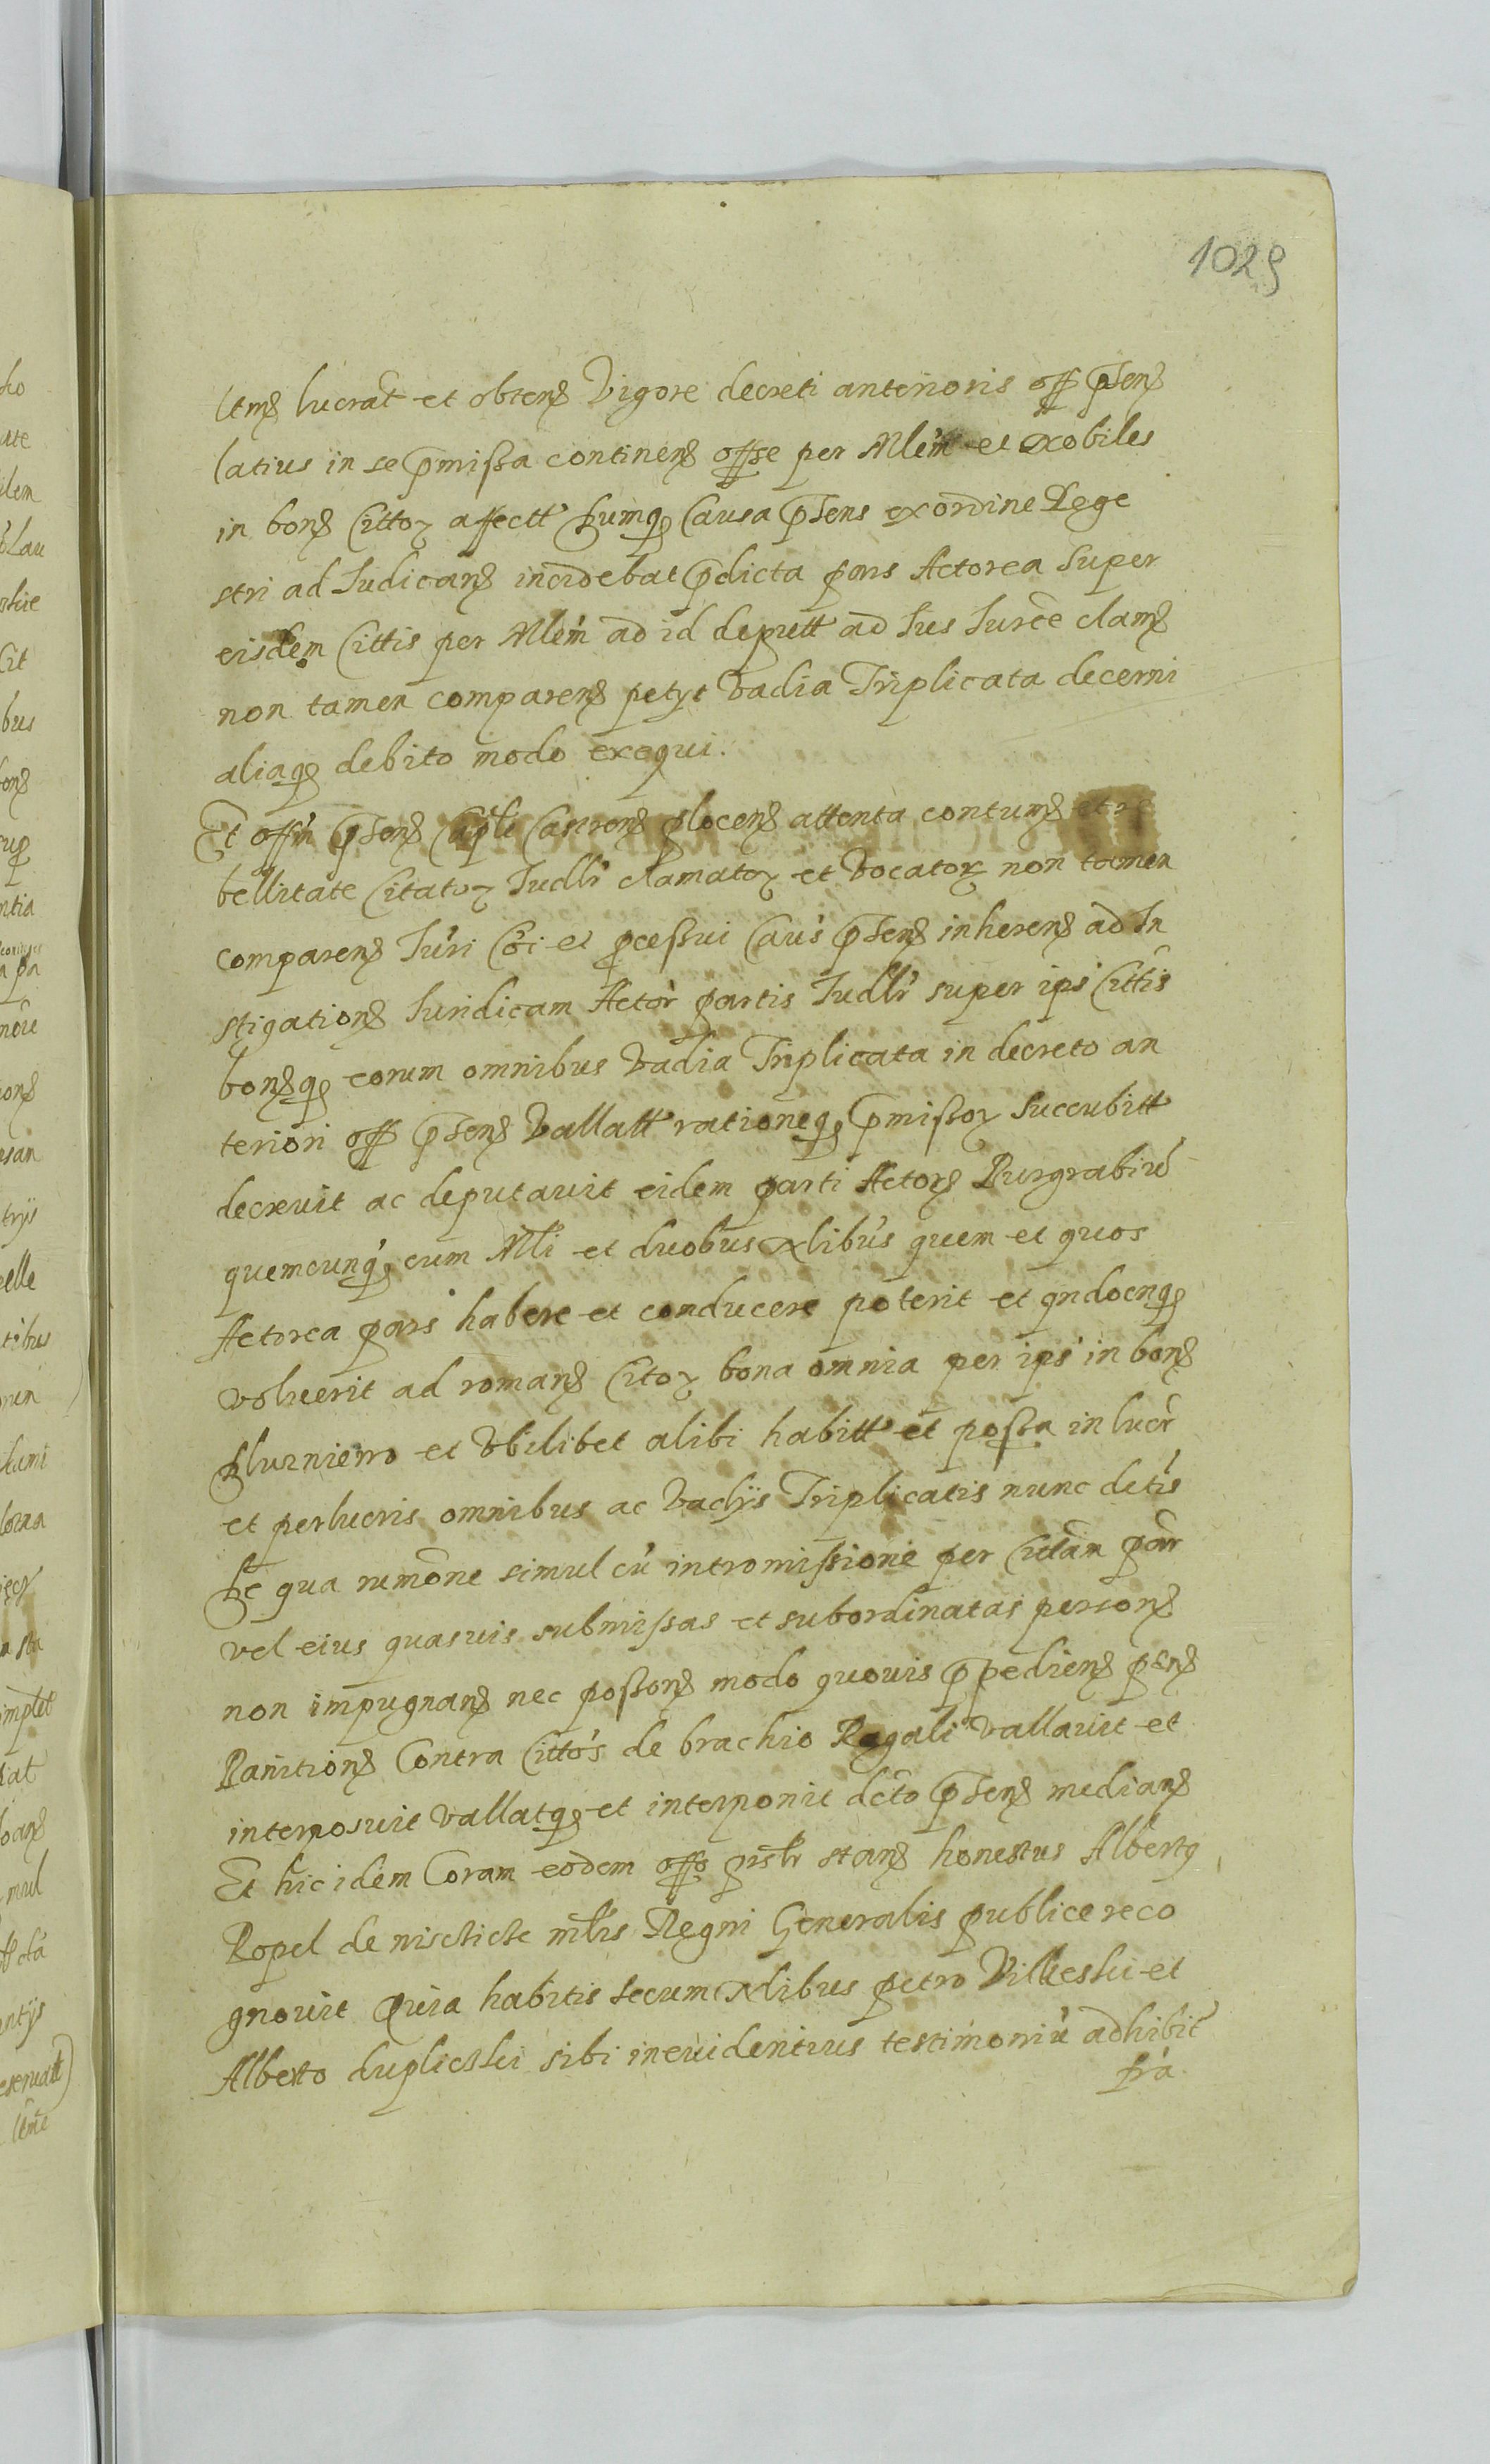 1029
ltmȝ lucrat et obtenȝ Vigore decreti anterioris off p̄senȝ
latius in se p̄missa continenȝ offse per Mlem et xobiles
in bonȝ Citto⁊ affectt Cumqȝ Causa p̄sens ex ordine Rege
stri ad Iudicanȝ incidebat p̄dicta pars Actorea super
eisdem Cittis per Mlem ad id deputt ad Ius Iurce clamȝ
non tamen comparenȝ petyt Vadia Triplicata decerni
aliaqȝ debito modo exequi.
Et offm p̄senȝ Caple Castrenȝ plocenȝ attenta contumȝ et re
bellitate Citato⁊ Iudlr clamato⁊ et Vocator non tamen
comparenȝ Iuri Coi et pcessui Caus p̄senȝ inherenȝ ad In
stigationȝ Iuridicam Actor partis Iudlr super ips Cittis
bonȝqȝ eorum omnibus Vadia Triplicata in decreto an
teriori off p̄senȝ Vallatt rationeqȝ p̄misso⁊ succubitt
decrevit ac deputavit eidem parti Actorȝ Burgrabiu
quemcunqȝ cum Mli et duobus xlibus quem et quos
Actorea pars habere et conducere poterit et qndocnqȝ
voluerit ad romanȝ Cito⁊ bona omnia per ips in bonȝ
et Vbilibet alibi habitt et possa in lucr
et perlucris omnibus ac Vadys Triplicatis nunc detis
De qua rumone simul cu intromissione per Cittam par
vel eius quasuis submissas et subordinatas personȝ
non impugnanȝ nec possonȝ modo quouis p̄pedienȝ penȝ
Banitionȝ Contra Cittos de brachio Regali vallavit et
interposuit vallatqȝ et interponit deto p̄senȝ medianȝ
Et hic idem Coram eodem offo pislr stanȝ honestus Albertꝯ
Ropel de mlris Regni Generalis publice reco
gnovit Quia habitis secum xlibus petro et
Alberto sibi in euidentius testimoniu adhibit
fra